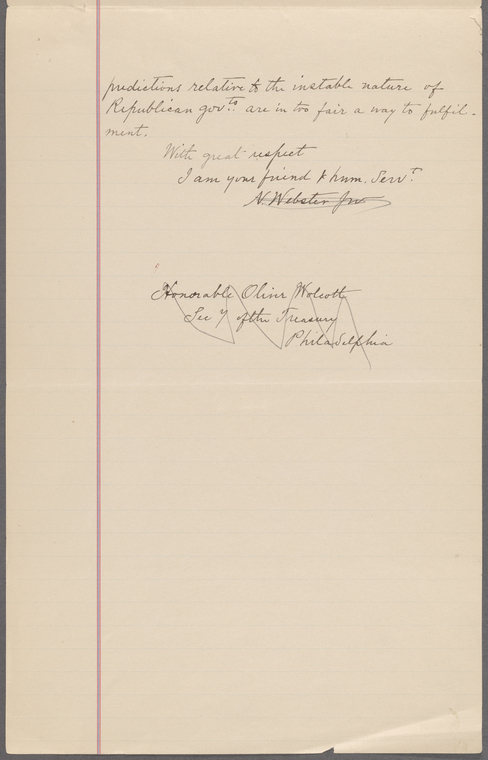 predictions relative to the instable nature of
Republican govts. are in too fair a way to fulfil-
ment.
With great respect
I am your friend & hum. Servt.
N. Webster Jun.
Honorable Oliver Wolcott
Secy of the Treasury
Philadelphia